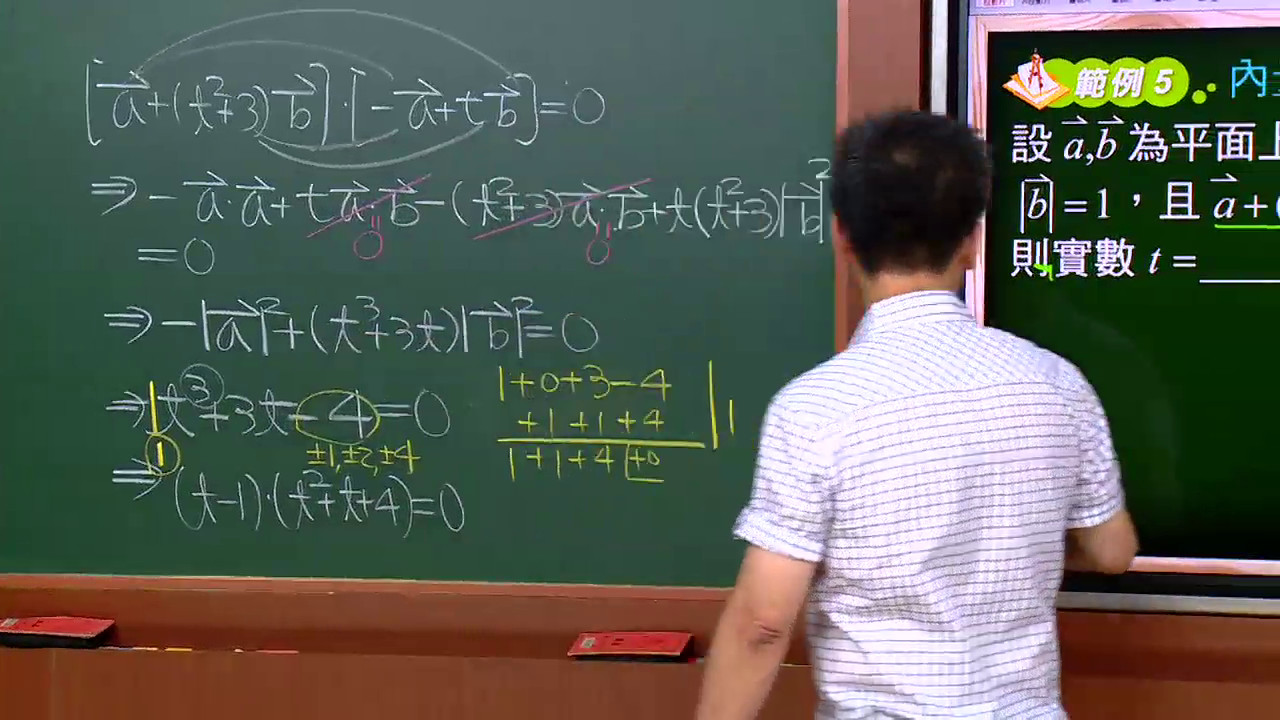 [a⃗+(t²+3)b⃗]·[-a⃗+tb⃗]=0
⇒ -a⃗·a⃗+ta⃗·b⃗-(t²+3)a⃗·b⃗+t(t²+3)|b⃗|²
0 0
=0
⇒ -|a⃗|²+(t³+3t)|b⃗|²=0
⇒ 1t³+3t-4=0
1 ±1,±2,±4
⇒ (t-1)·(t²+t+4)=0
1+0+3-4 | 1
+1+1+4
1+1+4 +0
範例 5 內
設 a⃗,b⃗ 為平面上
|b⃗|=1，且 a⃗+(
則實數 t = ____